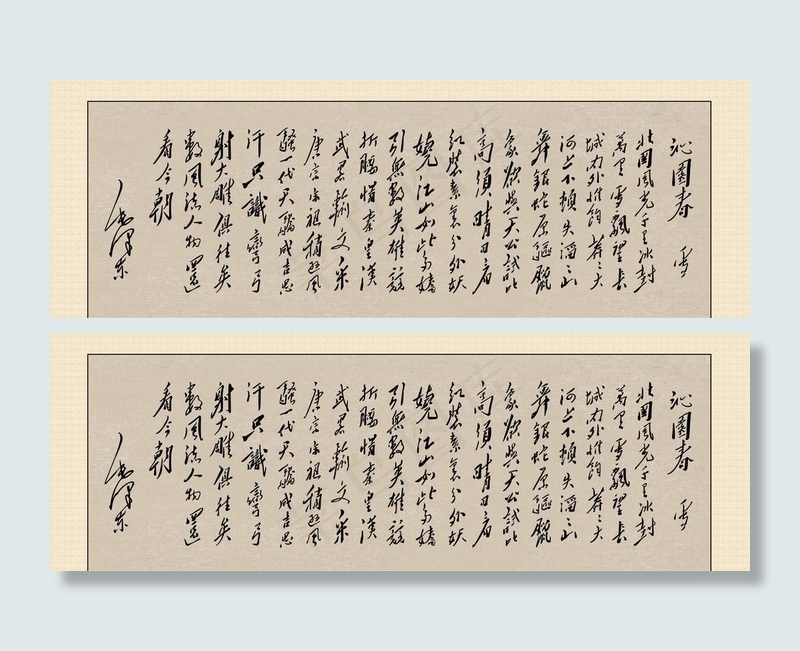 沁園春 雪
北國風光千里冰封
萬里雪飄望長
城內外惟餘莽々大
河上下頓失滔々山
舞銀蛇原驅蠟
象欲與天公試比
高須晴日看
紅裝素裹分外妖
嬈江山如此多嬌
引無數英雄競
折腰惜秦皇漢
武略輸文采
唐宗宋祖稍遜風
騷一代天驕成吉思
汗只識彎弓
射大雕俱往矣
數風流人物還
看今朝
毛澤東
沁園春 雪
北國風光千里冰封
萬里雪飄望長
城內外惟餘莽々大
河上下頓失滔々山
舞銀蛇原驅蠟
象欲與天公試比
高須晴日看
紅裝素裹分外妖
嬈江山如此多嬌
引無數英雄競
折腰惜秦皇漢
武略輸文采
唐宗宋祖稍遜風
騷一代天驕成吉思
汗只識彎弓
射大雕俱往矣
數風流人物還
看今朝
毛澤東